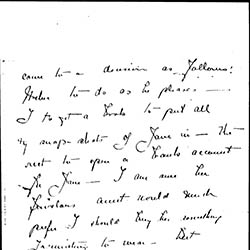 came to a decision as follows:
to do as he pleases —
I to get a book to put all
my snapshots of Jane in — the
rest to open a bank account
for Jane — I am sure her
aunt would much
prefer I should buy her something
to wear — But